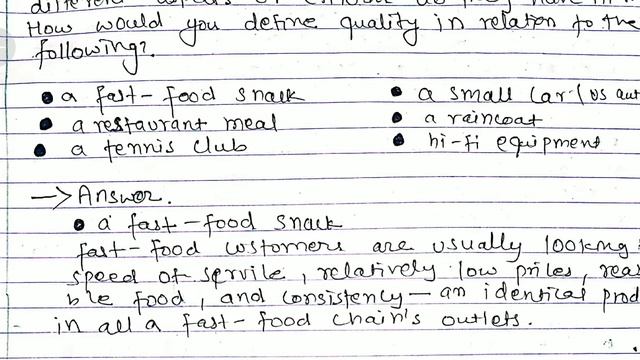 How would you define quality in relation to the
following?
• a fast-food snack • a small car (us
• a restaurant meal • a raincoat
• a tennis club • hi-fi equipment
—> Answer.
• a fast-food snack
fast-food customers are usually looking
speed of service, relatively low prices,
ble food, and consistency — an identical
in all a fast-food chain's outlets.